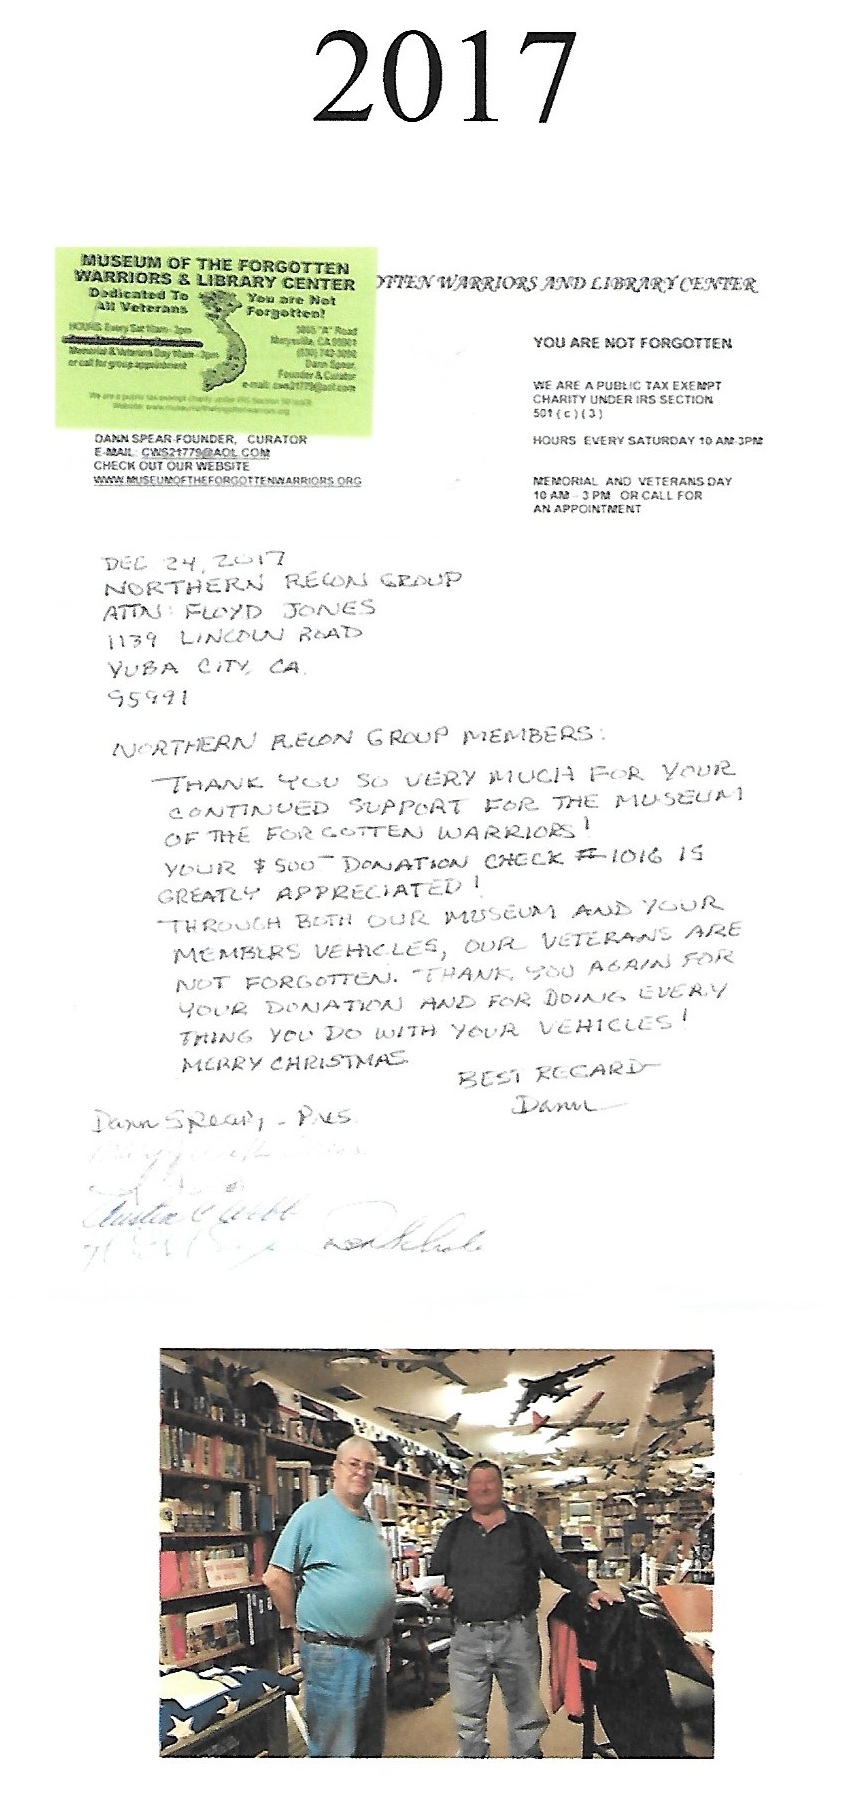 2017
MUSEUM OF THE FORGOTTEN
WARRIORS & LIBRARY CENTER
Dedicated To
All Veterans
You are Not
Forgotten!
HOURS: Every Sat 10am - 3pm
Memorial & Veterans Day 10am - 3pm
or call for group appointment
5865 "A" Road
Marysville, CA 95901
(530) 742-3090
Dann Spear,
Founder & Curator
e-mail: cws21779@aol.com
We are a public tax exempt charity under IRS Section 501(c)(3)
Website: www.museumoftheforgottenwarriors.org
OTTEN WARRIORS AND LIBRARY CENTER
YOU ARE NOT FORGOTTEN
WE ARE A PUBLIC TAX EXEMPT
CHARITY UNDER IRS SECTION
501 ( c ) ( 3 )
HOURS EVERY SATURDAY 10 AM-3PM
MEMORIAL AND VETERANS DAY
10 AM - 3 PM OR CALL FOR
AN APPOINTMENT
DANN SPEAR-FOUNDER, CURATOR
E-MAIL: CWS21779@AOL.COM
CHECK OUT OUR WEBSITE
WWW.MUSEUMOFTHEFORGOTTENWARRIORS.ORG
DEC 24, 2017
NORTHERN RECON GROUP
ATTN: FLOYD JONES
1139 LINCOLN ROAD
YUBA CITY, CA.
95991
NORTHERN RECON GROUP MEMBERS:
THANK YOU SO VERY MUCH FOR YOUR
CONTINUED SUPPORT FOR THE MUSEUM
OF THE FORGOTTEN WARRIORS!
YOUR $500- DONATION CHECK #1016 IS
GREATLY APPRECIATED!
THROUGH BOTH OUR MUSEUM AND YOUR
MEMBERS VEHICLES, OUR VETERANS ARE
NOT FORGOTTEN. THANK YOU AGAIN FOR
YOUR DONATION AND FOR DOING EVERY
THING YOU DO WITH YOUR VEHICLES!
MERRY CHRISTMAS
BEST REGARD
Dann
Dann Spear, - Pres.
Austin C Webb